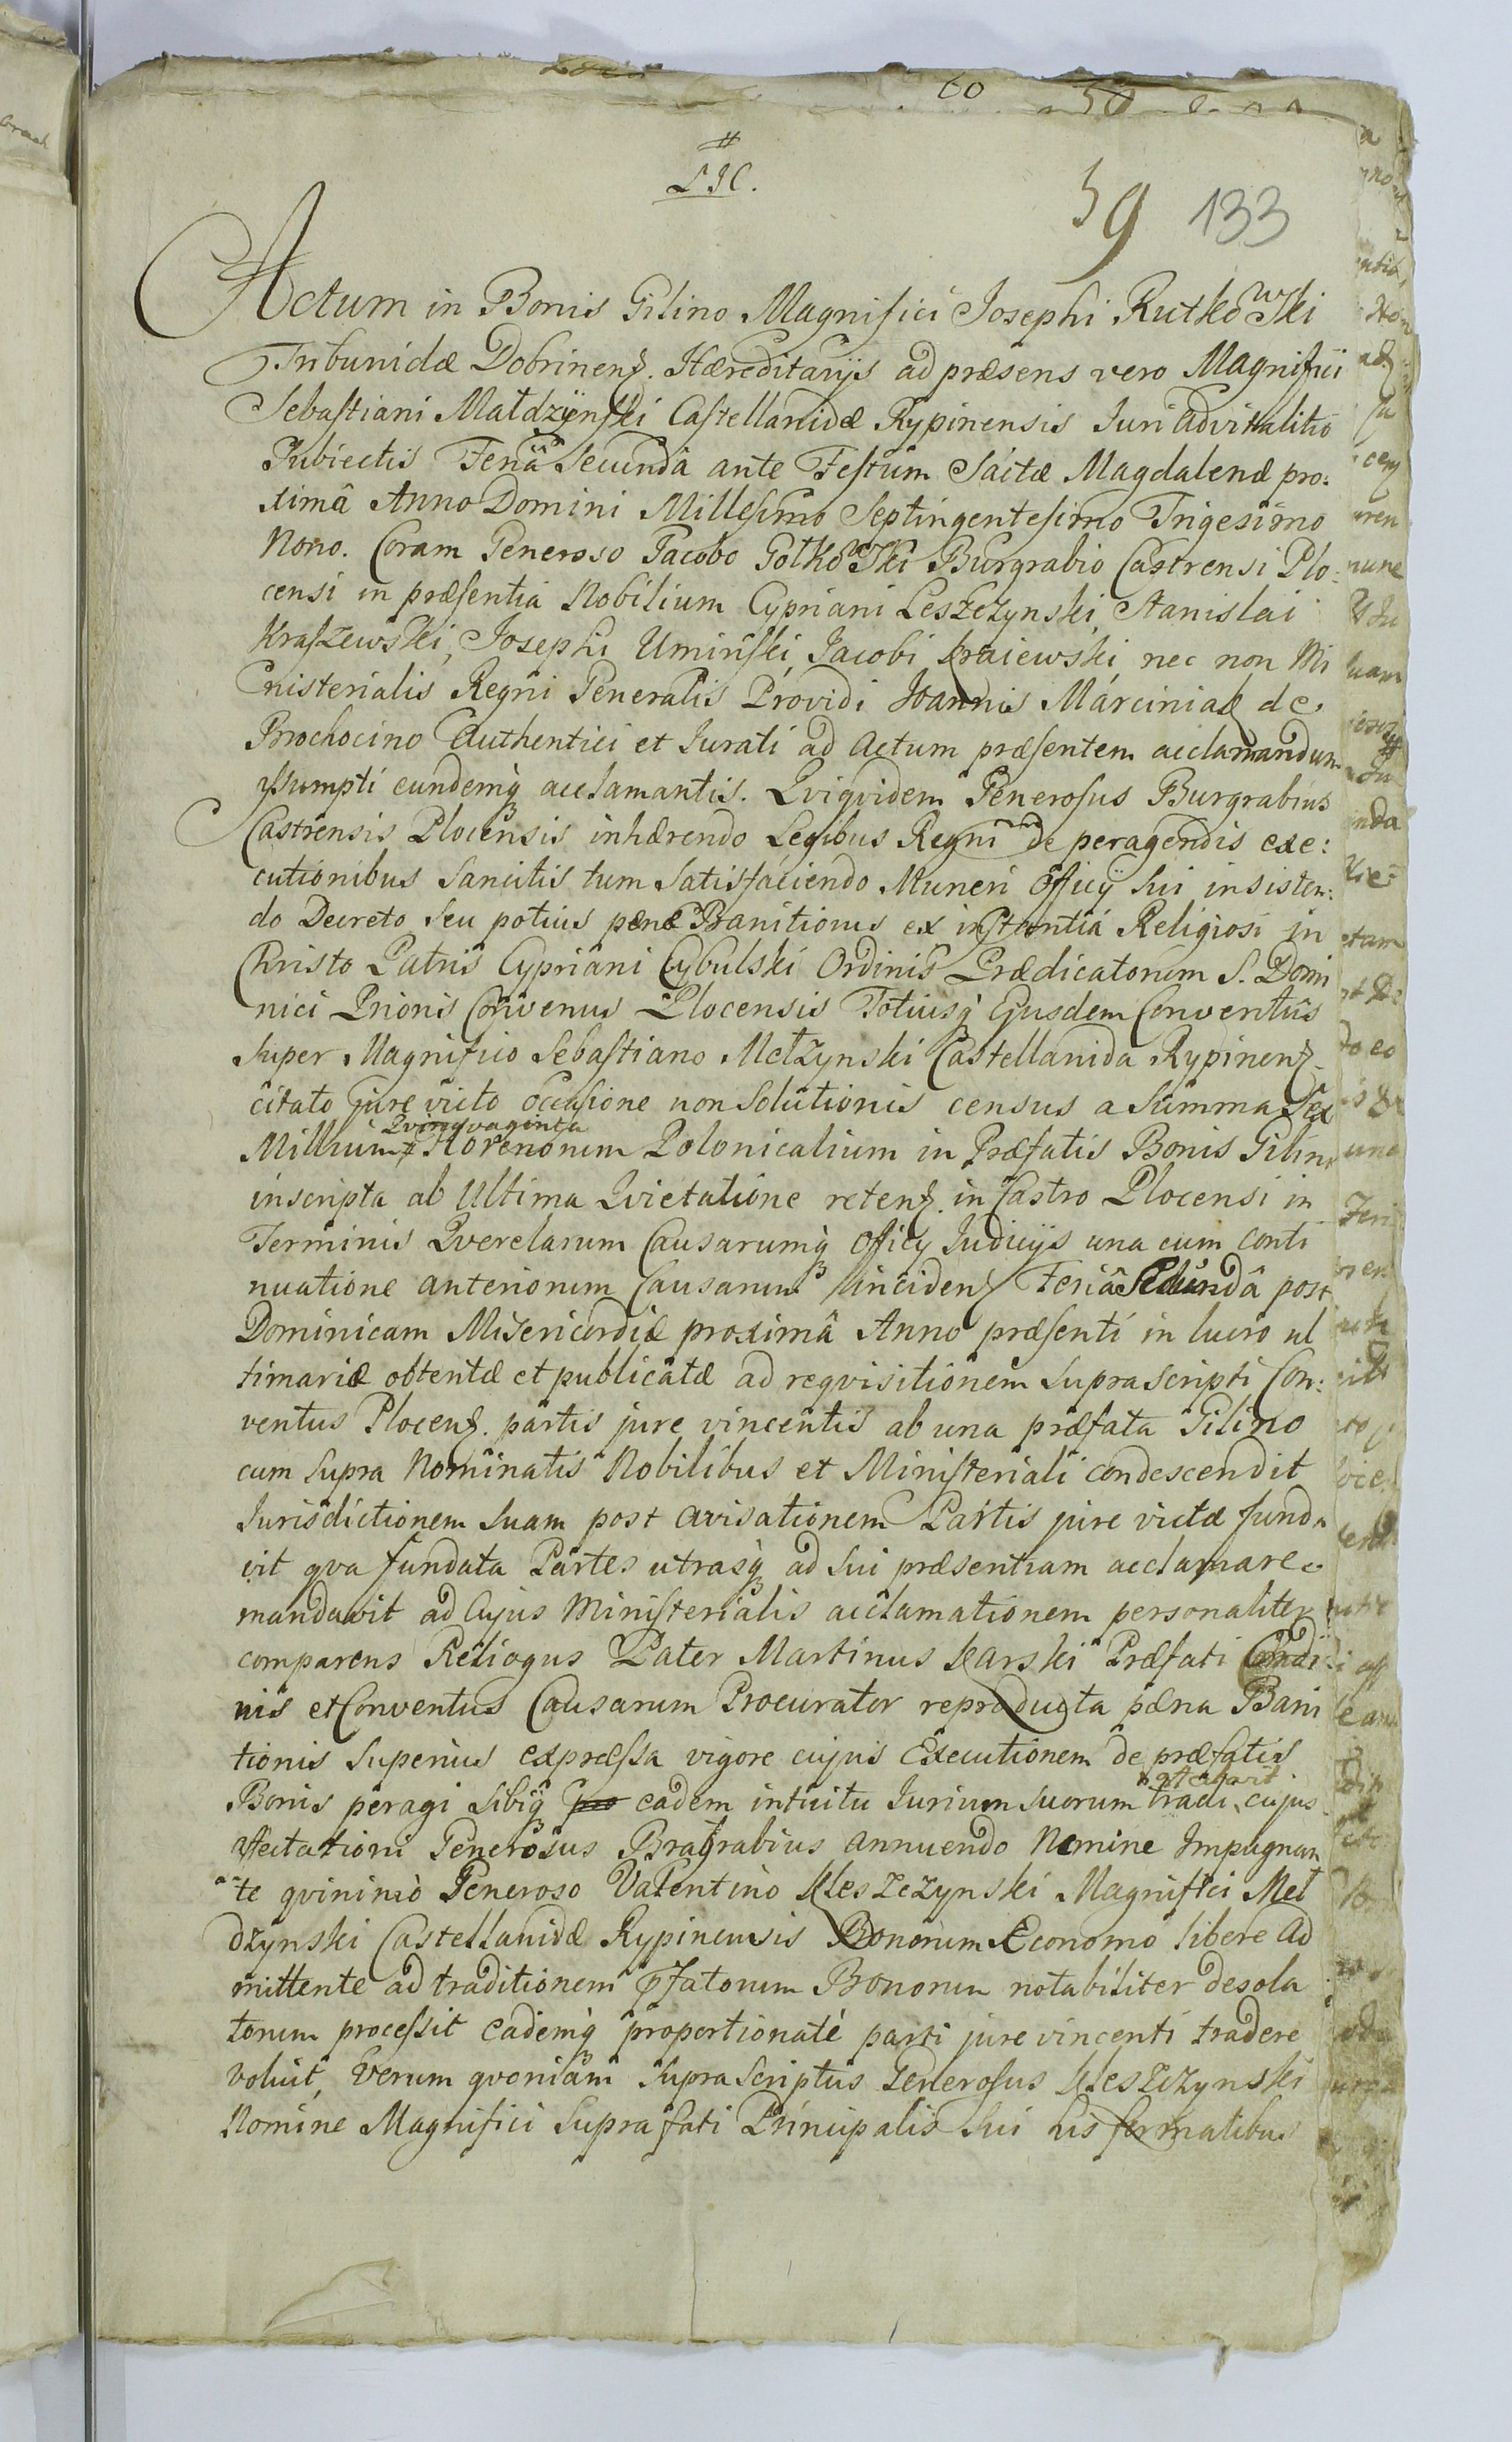 60 50
LJC.
59 133
Actum in Bonis Gilino Magnifici Josephi Rutkowski
Tribunidæ Dobrinenȝ. Hæreditarijs ad præsens vero Magnifici
Sebastiani Małdzÿnski Castellanidæ Rypinensis Juri advitalitio
Subiectis Feriâ Secundâ ante Festum Sáctæ Magdalenæ pro:
ximâ Anno Domini Millesimo Septingentesimo Trigesimo
Nono. Coram Generoso Jacobo Gotkowski Burgrabio Castrensi Plo:
censi in præsentia Nobilium Cypriani Leszczynski, Stanislai
Kraszewski, Josephi Uminski, Jacobi Kraiewski nec non Mi
nisterialis Regni Generalis Providi Joannis Márciniak de
Brochocino Authentici et Jurati ad Actum præsentem acclamandum
assumpti eundemq acclamantis. Qviqvidem Generosus Burgrabius
Castrensis Plocensis inhærendo Legibus Regni de peragendis exe:
cutionibus Sancitis tum Satisfaciendo Muneri Officÿ Sui insisten:
do Decreto Seu potius pænæ Banitionis ex instantiá Religiosi in
Christo Patris Cypriani Cybulski Ordinis Prædicatorum S. Domi
nici Prioris Convenus Plocensis Totiusq Ejusdem Conventûs
Super Magnifico Sebastiano Mełzynski Castellanida Rypinenȝ
citato jure victo occasione non Solutionis census a Summa Sex
Qvinqvaginta
Millium Florenorum Polonicalium in Præfatis Bonis Gilino
inscripta ab Ultima Qvietatione retenȝ. in Castro Plocensi in
Terminis Qverelarum Causarumq Officÿ Judicijs una cum conti
nuatione anteriorum Causarum incidenȝ Feriâ Secundâ post
Dominicam Misericordiæ proximâ Anno præsenti in lucro ul
timariæ obtentæ et publicatæ ad reqvisitionem Suprascripti Con:
ventus Plocenȝ. partis jure vincentis ab una præfata Gilino
cum Supra Nominatis Nobilibus et Ministeriali condescendit
Jurisdictionem Suam post avisationem Partis jure victæ funda
vit qva fundata Partes utrasq ad Sui præsentiam acclamare
mandavit ad Cujus Ministerialis acclamationem personaliter
comparens Religus Pater Martinus Karski Præfati Ordi
nis et Conventus Causarum Procurator reproducta pæna Bani
tionis Superius expressa vigore cujus Executionem de præfatis
affectavit
Bonis peragi Sibiq pro eadem intuitu Jurium Suorum tradi, cujus
affectationi Generosus Bragrabius annuendo Nemine Impugnan
te qvinimò Generoso Valentino Kleszczynski Magnifici Meł
dzynski Castellanidæ Rypinensis Bonorum Economo libere ad
mittente ad traditionem pfatorum Bonorum notabiliter desola
torum processit eademq proportionaté parti jure vincenti tradere
voluit, Verum qvoniam Suprascriptus Generosus Kleszczynski
Nomine Magnifici Supra fati Principalis Sui his formalibus